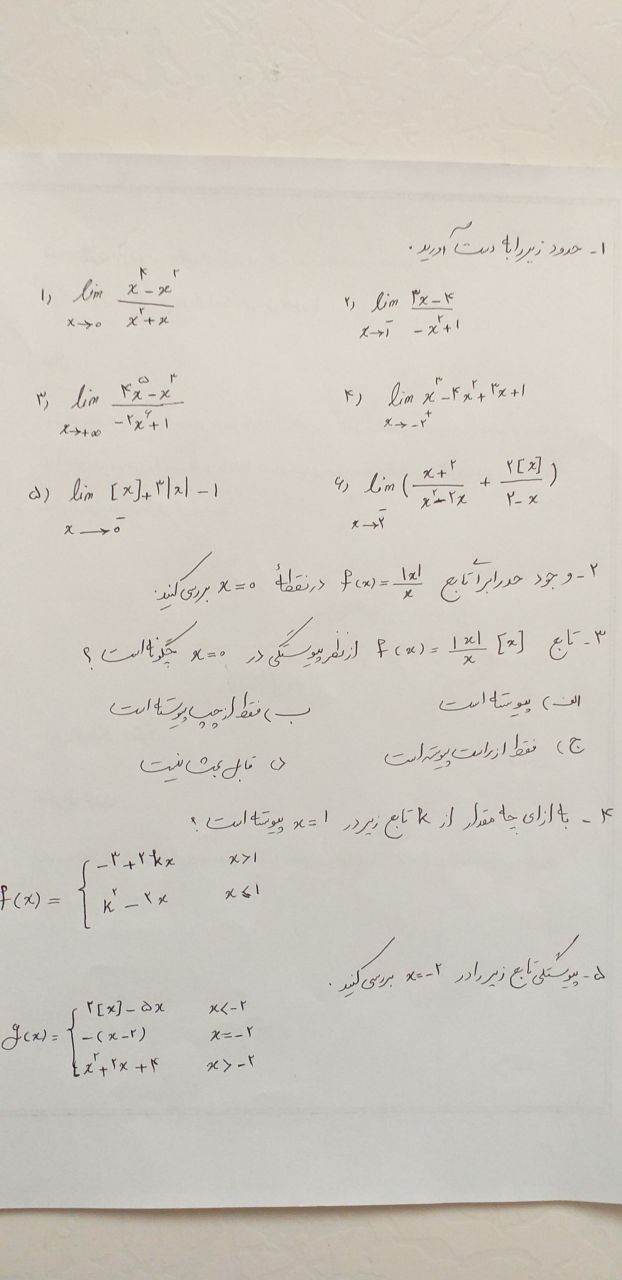 ۱- حدود زیر را به دست آورید.
۱) lim x→۰ (x^۴ - x^۲)/(x^۲ + x)
۲) lim x→۱⁻ (۳x - ۴)/(-x^۲ + ۱)
۳) lim x→+∞ (۴x^۵ - x^۳)/(-۲x^۶ + ۱)
۴) lim x→-۲⁺ x^۳ - ۴x^۲ + ۳x + ۱
۵) lim x→۰⁻ [x] + ۳|x| - ۱
۶) lim x→۲⁻ ((x + ۲)/(x^۲ - ۲x) + ۲[x]/(۲ - x))
۲- وجود حد را برای تابع f(x) = |x|/x در نقطهٔ x = ۰ بررسی کنید.
۳- تابع f(x) = |x|/x [x] از نظر پیوستگی در x = ۰ چگونه است؟
الف) پیوسته است ب) فقط از چپ پیوسته است
ج) فقط از راست پیوسته است د) قابل بحث نیست
۴- به ازای چه مقدار از k تابع زیر در x = ۱ پیوسته است؟
f(x) = {
-۳ + ۲kx x > ۱
k^۲ - ۲x x ≤ ۱
۵- پیوستگی تابع زیر را در x = -۲ بررسی کنید.
g(x) = {
۲[x] - ۵x x < -۲
-(x - ۲) x = -۲
x^۲ + ۲x + ۴ x > -۲